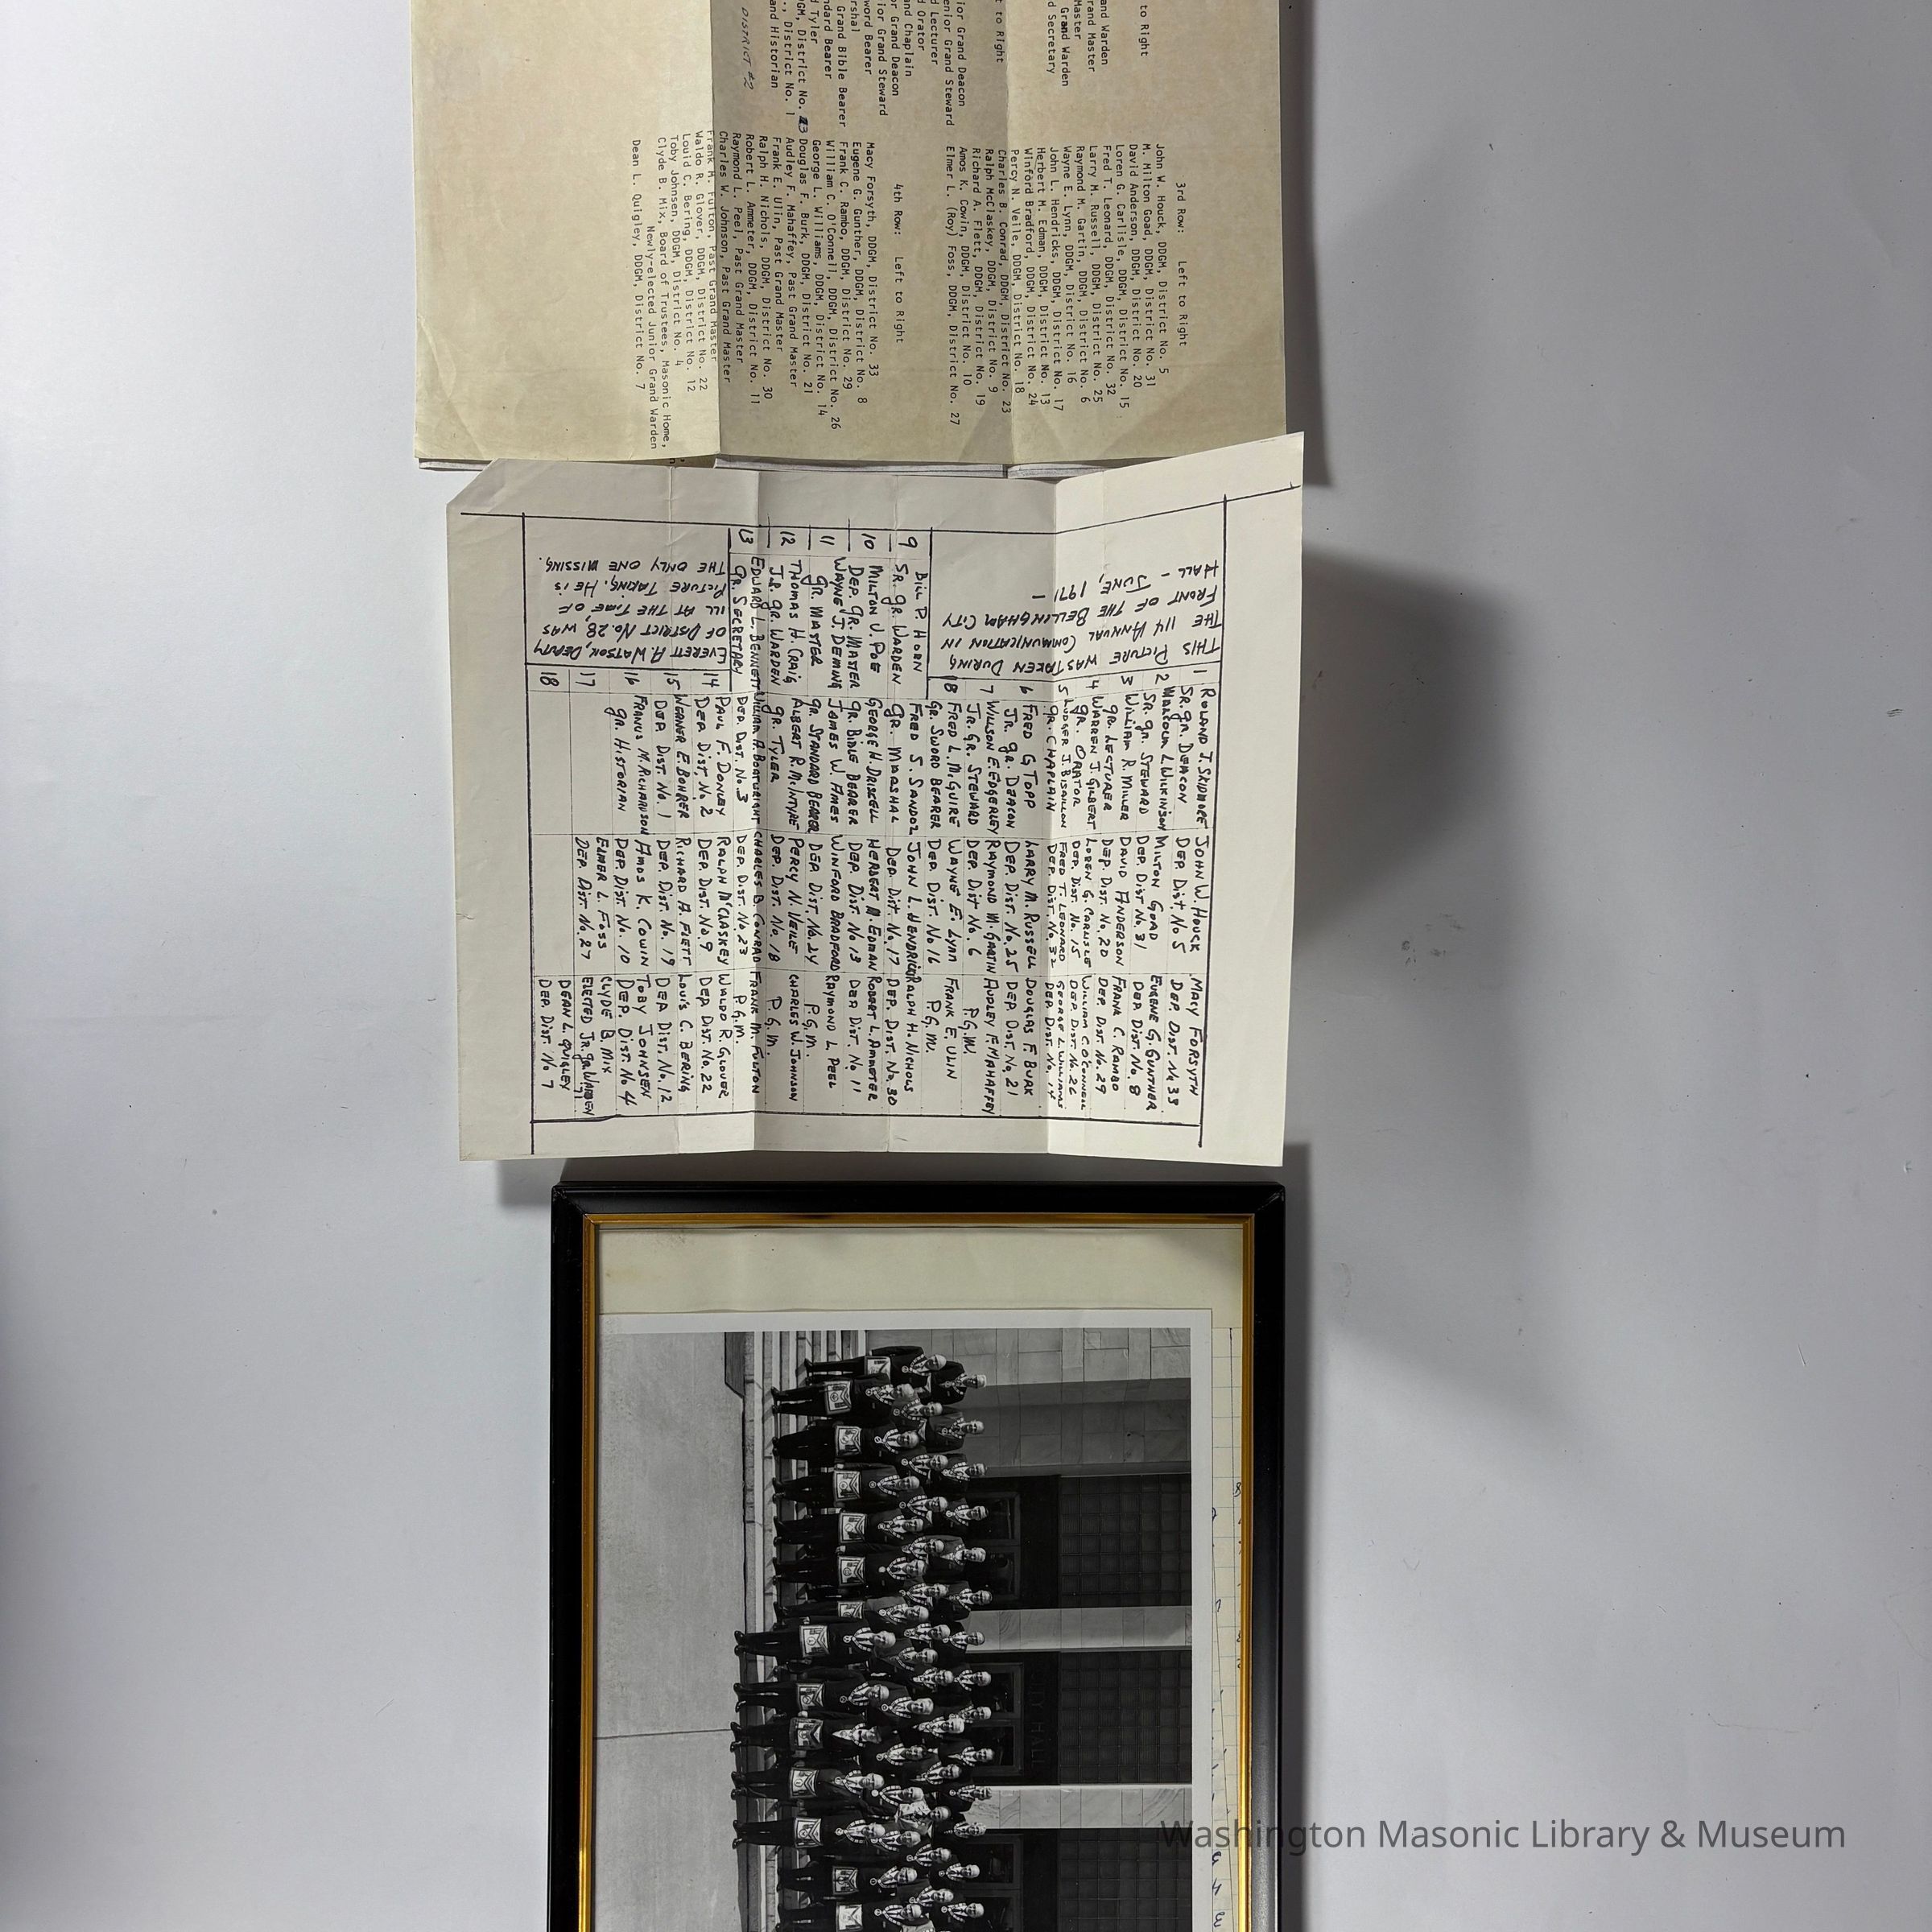 to Right
and Warden
rand Master
Master
Grand Warden
d Secretary
t to Right
ior Grand Deacon
enior Grand Steward
d Lecturer
d Orator
and Chaplain
or Grand Deacon
ior Grand Steward
word Bearer
rshal
Grand Bible Bearer
ndard Bearer
d Tyler
DGM, District No. 3
., District No. 1
and Historian
DISTRICT #2
3rd Row: Left to Right
John W. Houck, DDGM, District No. 5
M. Milton Goad, DDGM, District No. 31
David Anderson, DDGM, District No. 20
Loren G. Carlisle, DDGM, District No. 15
Fred T. Leonard, DDGM, District No. 32
Larry M. Russell, DDGM, District No. 25
Raymond M. Gartin, DDGM, District No. 6
Wayne E. Lynn, DDGM, District No. 16
John L. Hendricks, DDGM, District No. 17
Herbert M. Edman, DDGM, District No. 13
Winford Bradford, DDGM, District No. 24
Percy N. Veile, DDGM, District No. 18
Charles B. Conrad, DDGM, District No. 23
Ralph McClaskey, DDGM, District No. 9
Richard A. Flett, DDGM, District No. 19
Amos K. Cowin, DDGM, District No. 10
Elmer L. (Roy) Foss, DDGM, District No. 27
4th Row: Left to Right
Macy Forsyth, DDGM, District No. 33
Eugene G. Gunther, DDGM, District No. 8
Frank C. Rambo, DDGM, District No. 29
William C. O'Connell, DDGM, District No. 26
George L. Williams, DDGM, District No. 14
Douglas F. Burk, DDGM, District No. 21
Audley F. Mahaffey, Past Grand Master
Frank E. Ulin, Past Grand Master
Ralph H. Nichols, DDGM, District No. 30
Robert L. Ammeter, DDGM, District No. 11
Raymond L. Peel, Past Grand Master
Charles W. Johnson, Past Grand Master
Frank M. Fulton, Past Grand Master
Waldo R. Glover, DDGM, District No. 22
Louid C. Bering, DDGM, District No. 12
Toby Johnsen, DDGM, District No. 4
Clyde B. Mix, Board of Trustees, Masonic Home,
Newly-elected Junior Grand Warden
Dean L. Quigley, DDGM, District No. 7
THIS PICTURE WAS TAKEN DURING
THE 114 ANNUAL COMMUNICATION IN
FRONT OF THE BELLINGHAM CITY
HALL - JUNE, 1971 -
9 BILL P. HORN
SR. GR. WARDEN
10 MILTON J. POE
DEP. GR. MASTER
11 WAYNE J. DEMING
GR. MASTER
12 THOMAS H. CRAIG
JR. GR. WARDEN
13 EDWARD L. BENNETT
GR. SECRETARY
EVERETT A. WATSON, DEPUTY
OF DISTRICT No. 28 WAS
ILL AT THE TIME OF
PICTURE TAKING. HE IS
THE ONLY ONE MISSING.
1 ROLAND J. SKIDMORE
SR. GR. DEACON
2 MALCOLM L. WILKINSON
SR. GR. STEWARD
3 WILLIAM R. MILLER
GR. LECTURER
4 WARREN J. GILBERT
GR. ORATOR
5 LUDGER J. BISAILLON
GR. CHAPLAIN
6 FRED G TOPP
JR. GR. DEACON
7 WILLSON E. EDGERLEY
JR. GR. STEWARD
8 FRED L. McGUIRE
GR. SWORD BEARER
FRED S. SANDOZ
GR. MARSHAL
GEORGE H. DRISCELL
GR. BIBLE BEARER
JAMES W. AMES
GR. STANDARD BEARER
ALBERT R. McINTYRE
GR. TYLER
WILLIAM A. BOATWRIGHT
DEP. DIST. No. 3
14 PAUL F. DONLEY
DEP. DIST. No. 2
15 WERNER E. BOHRER
DEP. DIST. No. 1
16 FRANCIS M. RICHARDSON
GR. HISTORIAN
17
18
JOHN W. HOUCK
DEP. DIST. No 5
MILTON GOAD
DEP. DIST No. 31
DAVID ANDERSON
DEP. DIST. No. 20
LOREN G. CARLISLE
DEP. DIST. No. 15
FRED T. LEONARD
DEP. DIST. No. 32
LARRY M. RUSSELL
DEP. DIST. No. 25
RAYMOND M. GARTIN
DEP. DIST No. 6
WAYNE E. LYNN
DEP. DIST. No 16
JOHN L. HENDRICKS
DEP. DIST. No. 17
HERBERT M. EDMAN
DEP. DIST. No 13
WINFORD BRADFORD
DEP DIST. No. 24
PERCY N. VEILE
DEP. DIST. No. 18
CHARLES B. CONRAD
DEP. DIST. No 23
RALPH McCLASKEY
DEP. DIST. No 9
RICHARD A. FLETT
DEP. DIST. No. 19
AMOS K. COWIN
DEP. DIST. No. 10
ELMER L. FOSS
DEP. DIST. No. 27
MACY FORSYTH
DEP. DIST. No 33
EUGENE G. GUNTHER
DEP. DIST. No. 8
FRANK C. RAMBO
DEP. DIST. No. 29
WILLIAM C. O'CONNELL
DEP. DIST. No. 26
GEORGE L. WILLIAMS
DEP. DIST. No. 14
DOUGLAS F. BURK
DEP. DIST. No. 21
AUDLEY F. MAHAFFEY
P.G.M.
FRANK E. ULIN
P.G.M.
RALPH H. NICHOLS
DEP. DIST. No. 30
ROBERT L. AMMETER
DEP DIST. No 11
RAYMOND L. PEEL
P.G.M.
CHARLES W. JOHNSON
P.G.M.
FRANK M. FULTON
P.G.M.
WALDO R. GLOVER
DEP. DIST. No. 22
LOUIS C. BERING
DEP. DIST. No. 12
TOBY JOHNSEN
DEP. DIST. No 4
CLYDE B. MIX
ELECTED JR. GR. WARDEN
DEAN L. QUIGLEY
DEP. DIST. No 7
CITY HALL
Washington Masonic Library & Museum